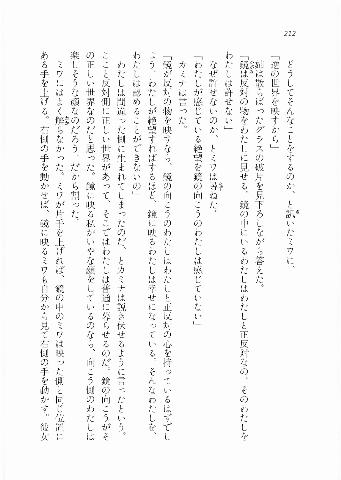 212
どうしてそんなことをするのか、と訊いたミワに、
「逆の世界を映すから」
彼は散らばったグラスの破片を見下ろしながら答えた。
「鏡は反対の物をわたしに見せる。鏡の中にいるわたしはわたしと正反対なの。そのわたしを
わたしは許せない」
なぜ許せないのか、とミワは尋ねた。
「わたしが感じている絶望を鏡の向こうのわたしは感じていない」
カミナは言った。
「鏡が反対の物を映すなら、鏡の向こうのわたしはわたしと正反対の心を持っているはずでし
ょう。わたしが絶望すればするほど、鏡に映るわたしは幸せになっている。そんなわたしを、
わたしは認めることができないの」
わたしは間違った側に生まれてしまったのだ、とカミナは説き伏せるように言ったという。
ここと反対側に正しい世界があって、そこではわたしは普通に暮らせるのだ。鏡の向こうがそ
の正しい世界なのだと思った。鏡に映る私がいやな顔をしているのなら、向こう側のわたしは
楽しそうな顔なのだろう。だから割った。
ミワにはよく解らなかった。ミワが片手を上げれば、鏡の中のミワは映った側と同じ位置に
ある手を上げる。右側の手を動かせば、鏡に映るミワも自分から見て右側の手を動かす。彼女